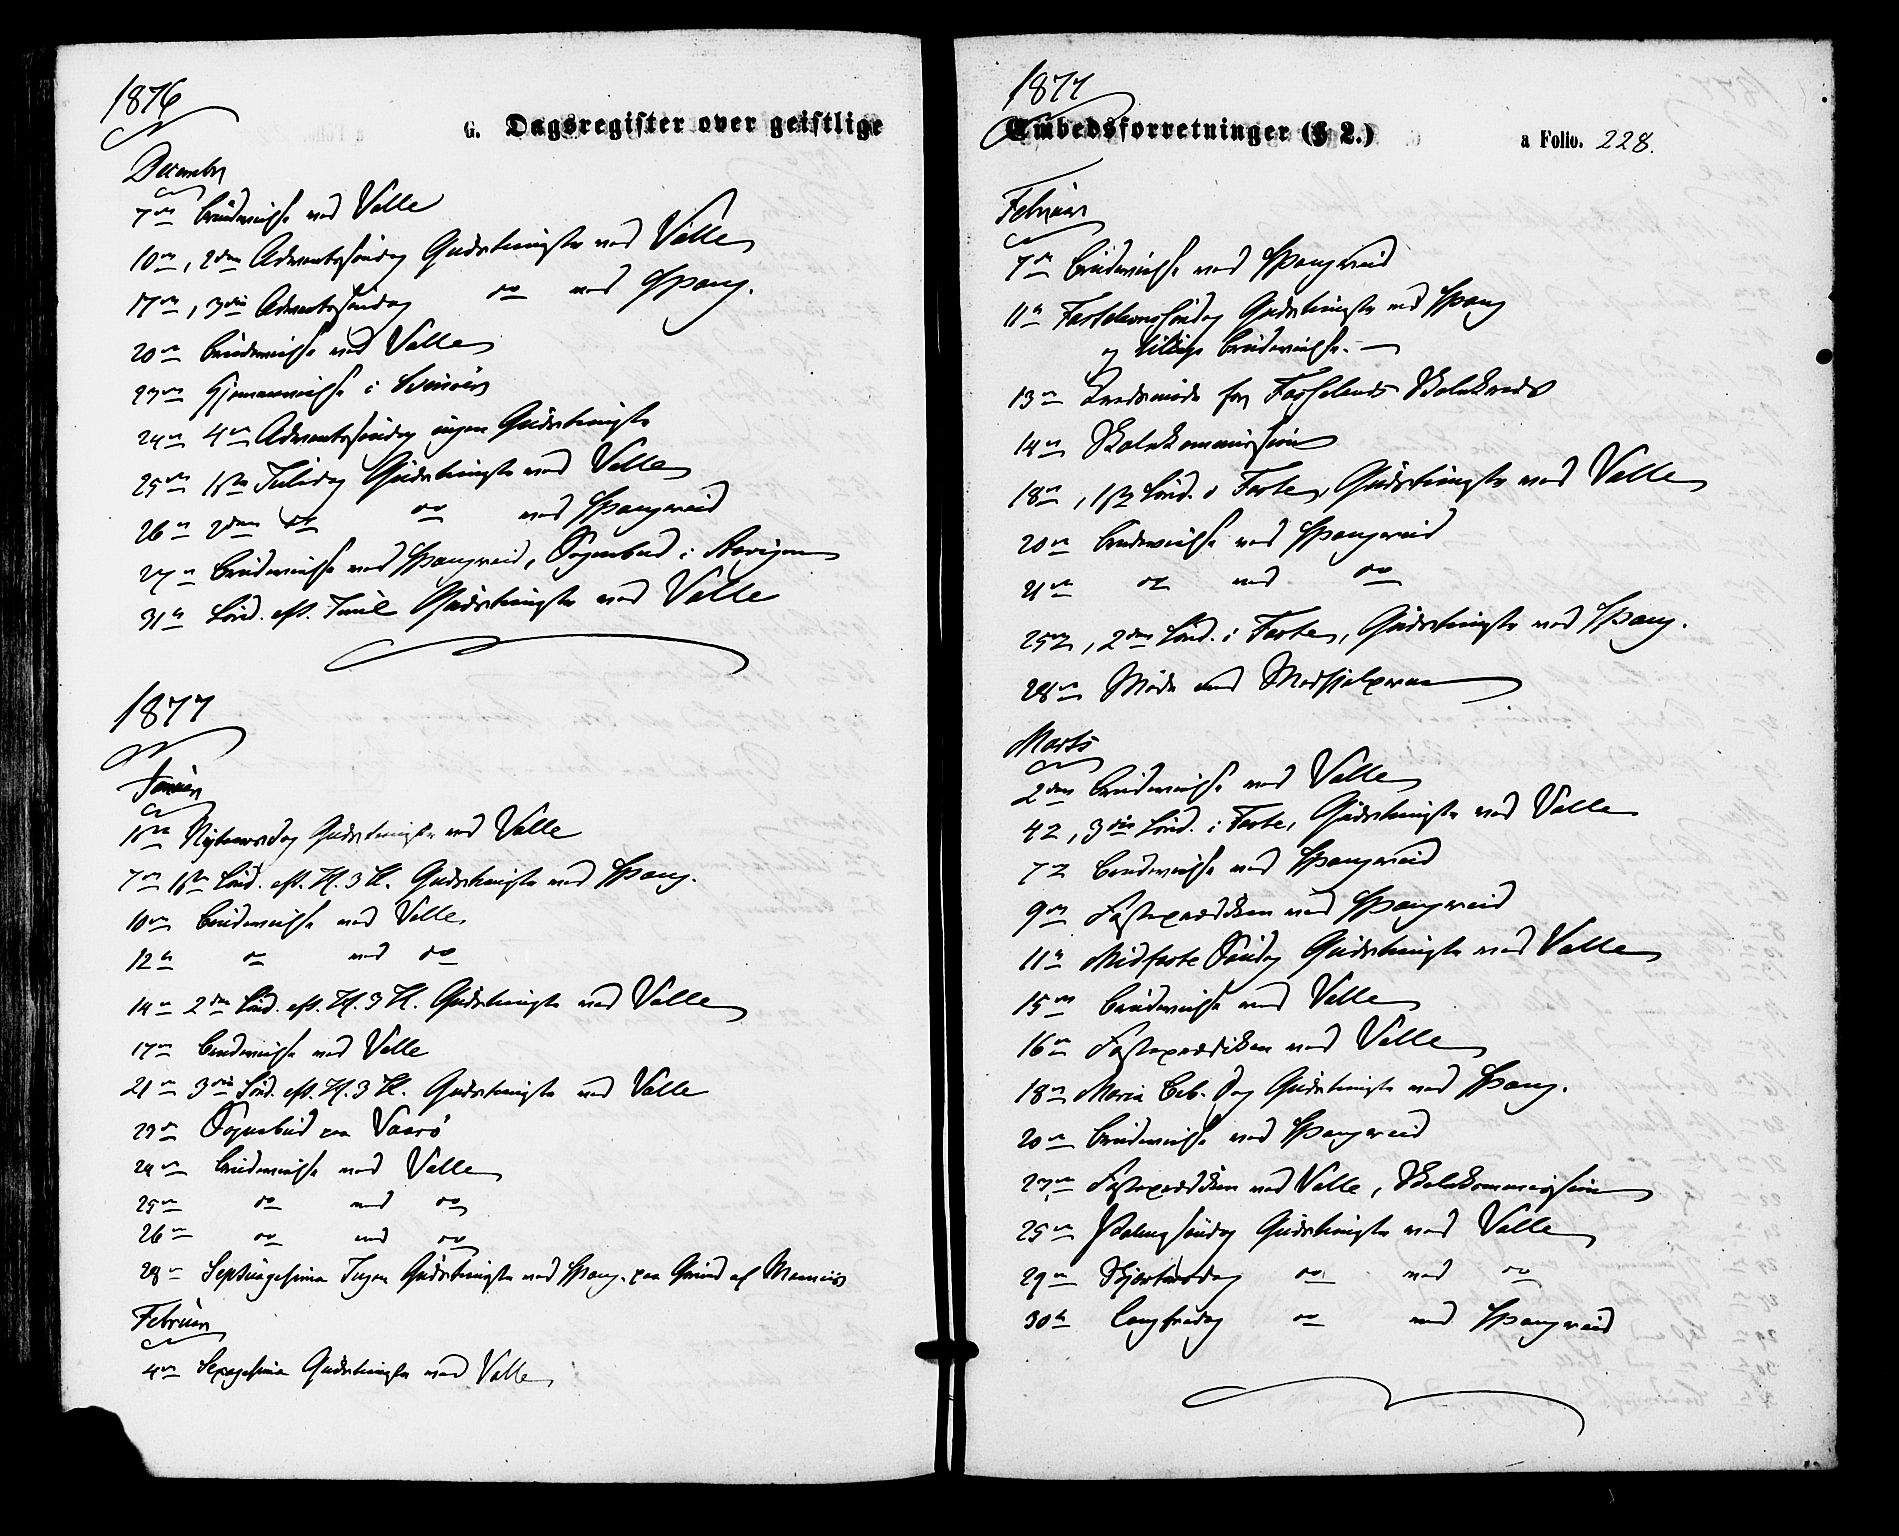 1876
G. Dagsregister over geistlige
December
7de Brudevielse ved Valle
10de, 2den Adventssöndag Gudstjeneste ved Valle
17de, 3die Adventssöndag do ved Spang.
20de Brudevielse ved Valle
23de Hjemmevielse i Svinöer
24de 4de Adventssöndag ingen Gudstjeneste
25de 1ste Juledag Gudstjeneste ved Valle
26de 2den do do ved Spangereid
27de Brudevielse ved Spangereid, Sognebud i
31te Sönd. eft. Juul Gudstjeneste ved Valle
1877
Januar
1ste Nytaarsdag Gudstjeneste ved Valle
7de 1ste Sönd. eft. H. 3 K. Gudstjeneste ved Spang.
10de Brudevielse ved Valle.
12te do ved do
14de 2den Sönd. eft. H. 3 K. Gudstjeneste ved Valle
17de Brudevielse ved Valle
21de 3die Sönd. eft. H. 3 K. Gudstjeneste ved Valle
23de Sognebud paa Vaarö
24de Brudevielse ved Valle
25de do ved do
26de do ved do
28de Septuagesima Ingen Gudstjeneste ved Spang. paa Grund af
Februar
4de Sexagesima Gudstjeneste ved Valle
1877
Embedsforretninger (§ 2.)
a Folio. 228.
Februar
7de Brudevielse ved Spangereid
11te Fastelavnssöndag Gudstjeneste ved Spang
og tillige Brudevielse. —
13de Kredsmöde for Skolekreds
14de Skolekommission
18de, 1ste Sönd. i Faste, Gudstjeneste ved Valle
20de Brudevielse ved Spangereid
21de do ved do
25de, 2den Sönd. i Faste, Gudstjeneste ved Spang.
28de Möde med Medhjelperne
Marts
2den Brudevielse ved Valle
4de, 3die Sönd. i Faste, Gudstjeneste ved Valle
7de Brudevielse ved Spangereid
9de Fasteprædiken ved Spangereid
11te Midfaste Söndag Gudstjeneste ved Valle
15de Brudevielse ved Valle
16de Fasteprædiken ved Valle
18de Maria Beb. Dag Gudstjeneste ved Spang.
20de Brudevielse ved Spangereid
23de Fasteprædiken ved Valle, Skolekommission
25de Palmesöndag Gudstjeneste ved Valle
29de Skjærtorsdag do ved do
30te Langfredag do ved Spangereid